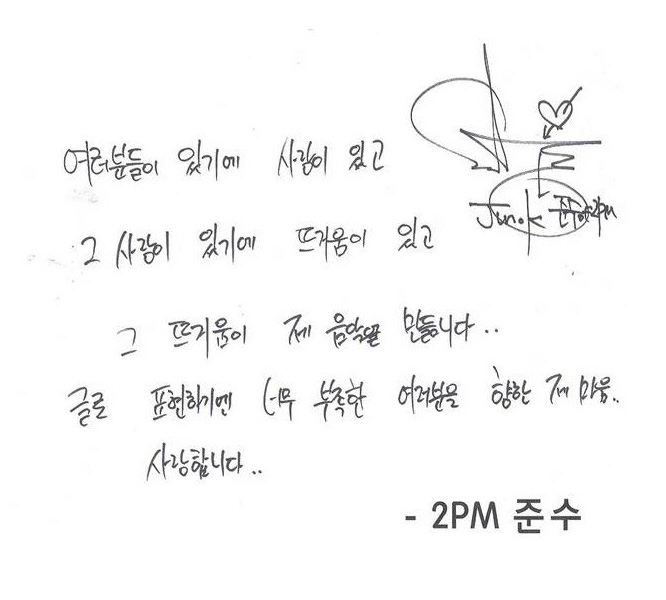 여러분들이 있기에 사랑이 있고
그 사랑이 있기에 뜨거움이 있고
그 뜨거움이 제 음악을 만듭니다..
글로 표현하기엔 너무 부족한 여러분을 향한 제 마음..
사랑합니다..
Jun.k
- 2PM 준수